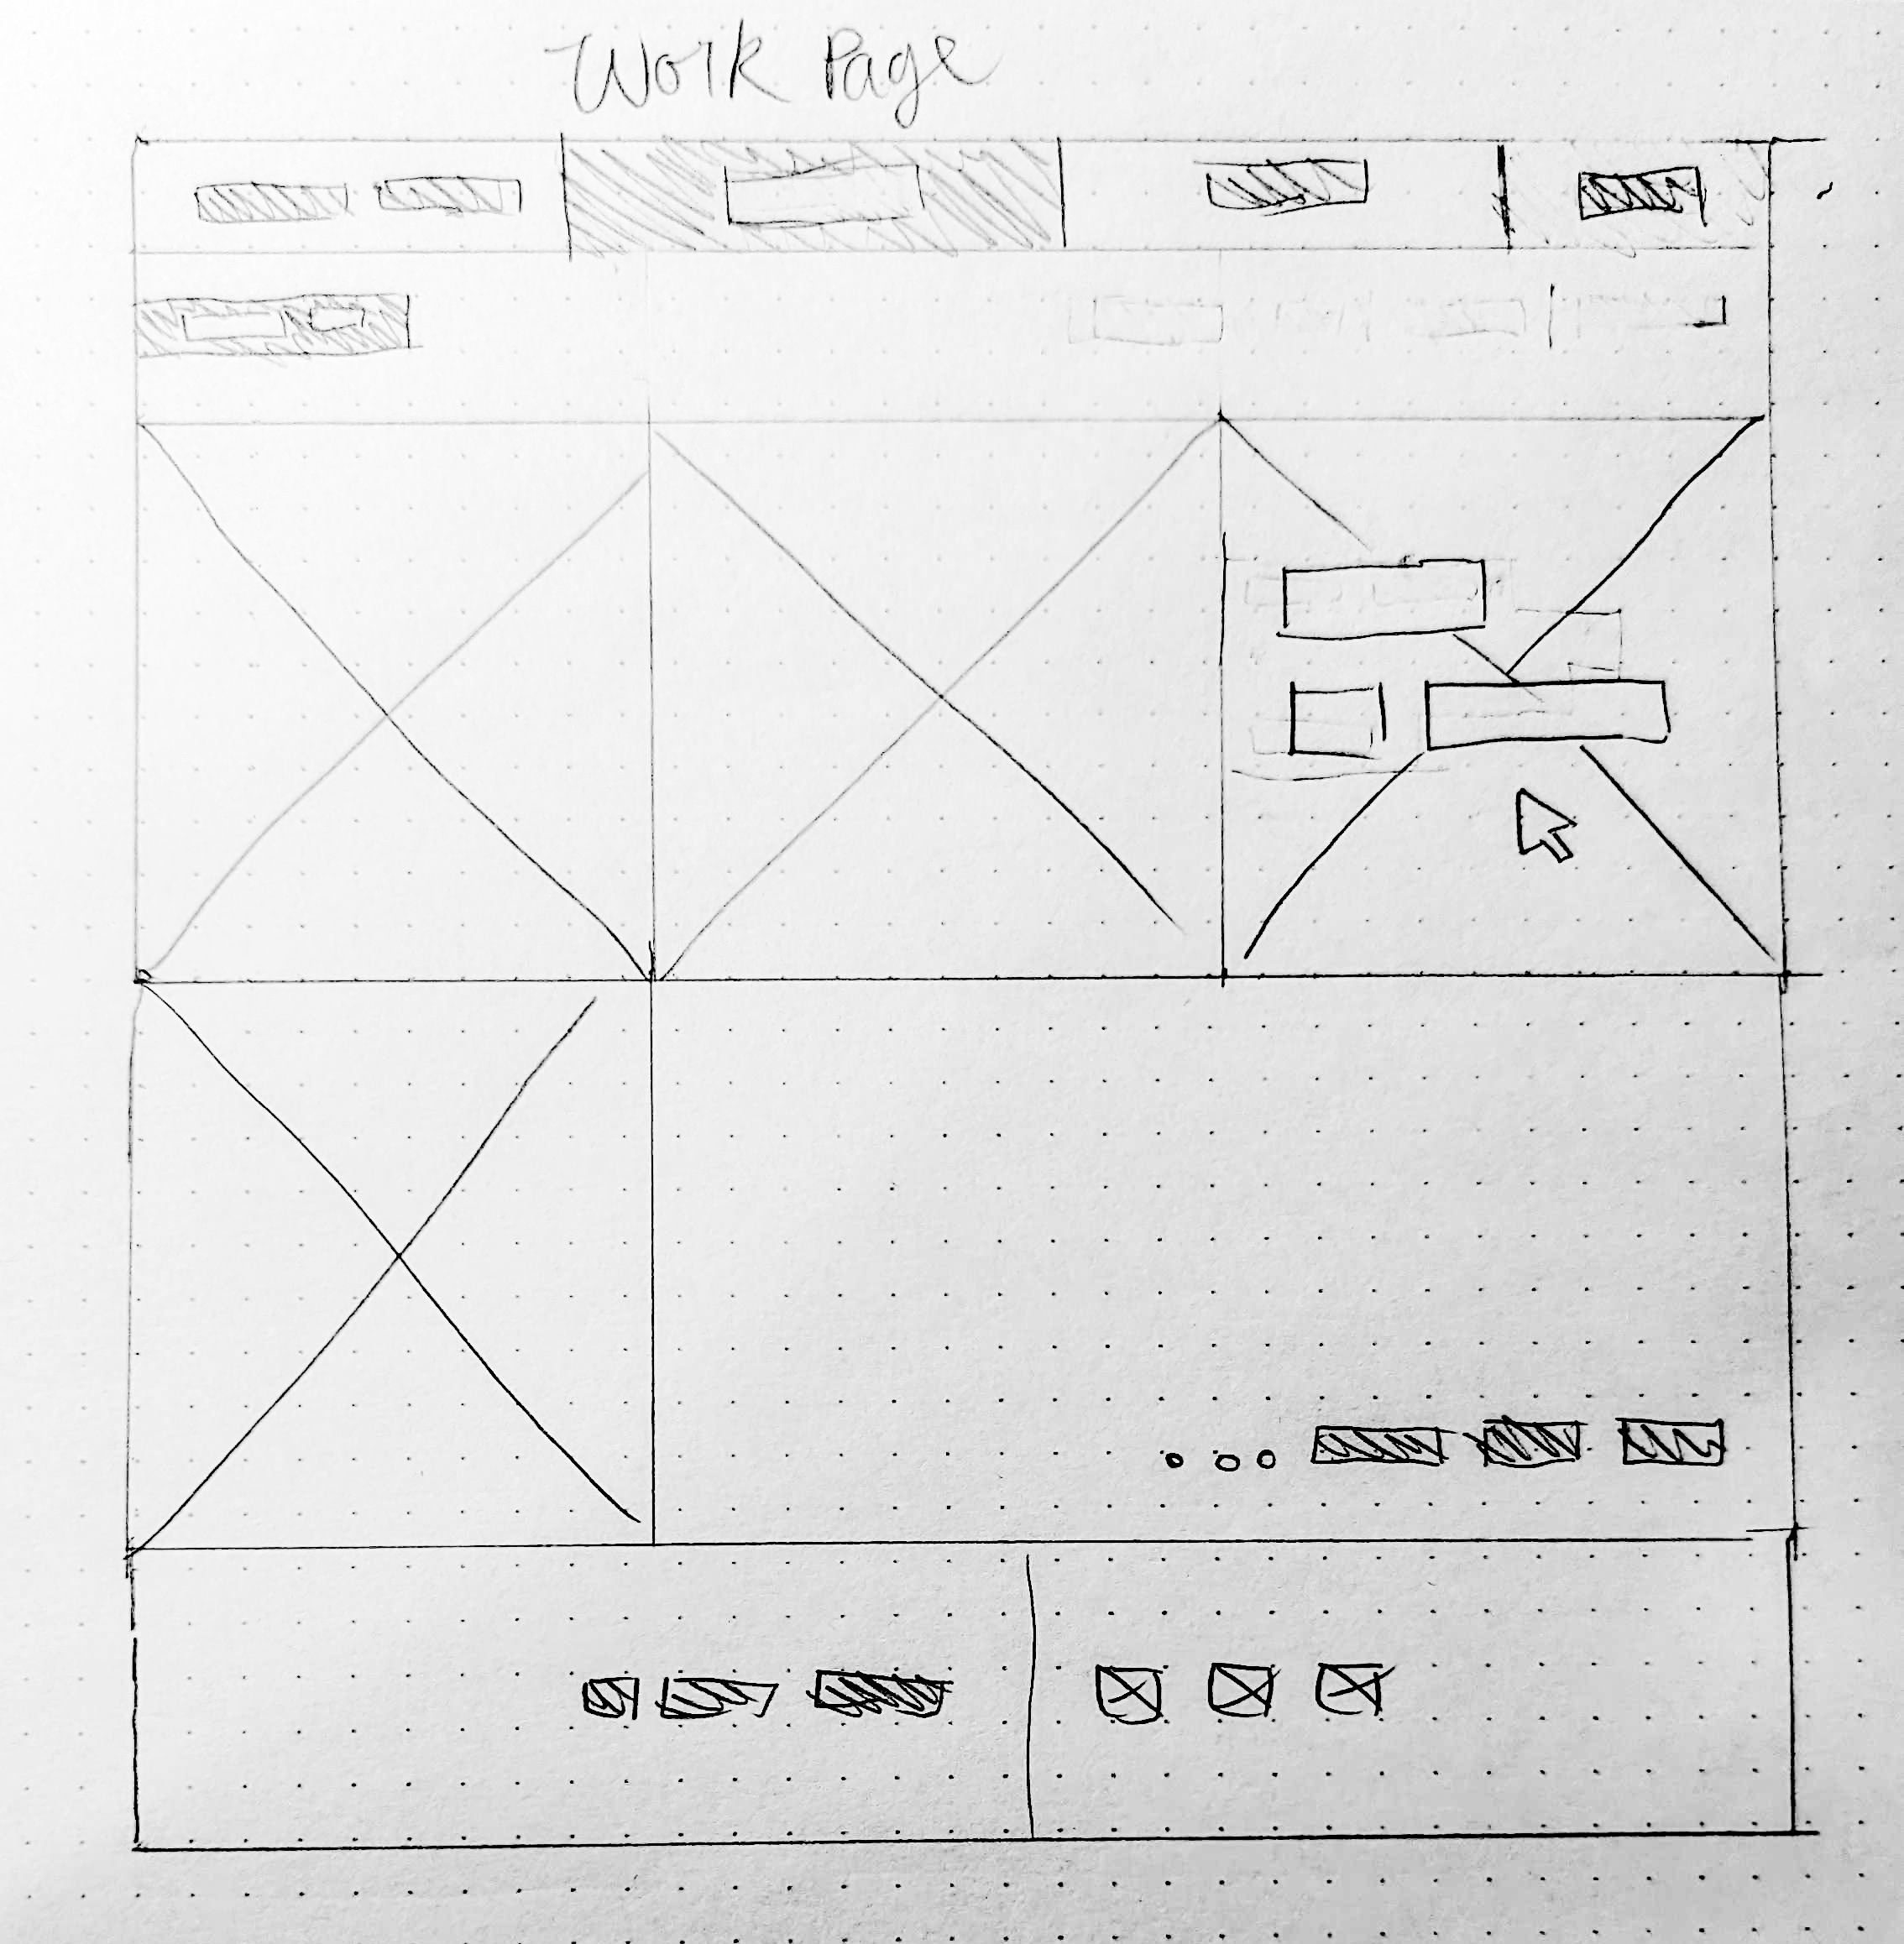 Work Page